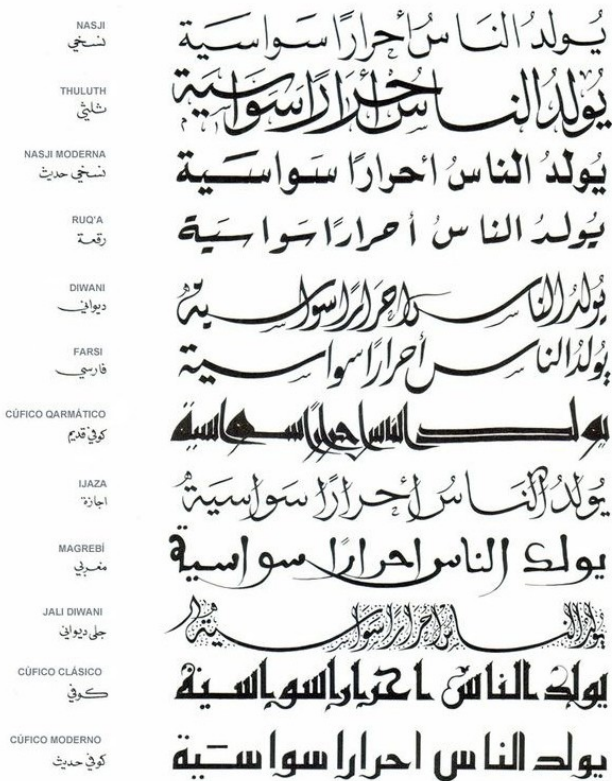 NASJI
نسخي
يُولدُ النَاسُ أحرارًا سَواسيَة
THULUTH
ثلثي
يُولدُ الناسُ أحرارًا سَواسيَة
NASJI MODERNA
نسخي حديث
يُولدُ الناسُ أحرارًا سَواسيَة
RUQ'A
رقعة
يُولدُ الناسُ أحرارًا سَواسيَة
DIWANI
ديواني
يُولدُ الناس احرَارًا سَواسية
FARSI
فارسي
يُولدُ الناس أحرارًا سواسية
CÚFICO QARMÁTICO
كوفي قديم
يولد الناس احرارا سواسية
IJAZA
اجازة
يُولدُ النَاسُ أحرارًا سَواسيَة
MAGREBÍ
مغربي
يولد الناس احرارًا سواسية
JALI DIWANI
جلى ديواني
يُولدُ الناس احرارًا سَواسية
CÚFICO CLÁSICO
كوفي
يولد الناس احراراسواسية
CÚFICO MODERNO
كوفي حديث
يولد الناس احرارا سواسَية